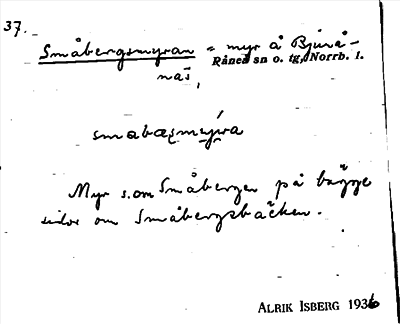 37.
Småbergsmyran = myr å Bjurå-
näs,
Råneå sn o. tg, Norrb. l.
Myr s.om Småbergen på bägge
sidor om Småbergsbäcken.
ALRIK ISBERG 1936